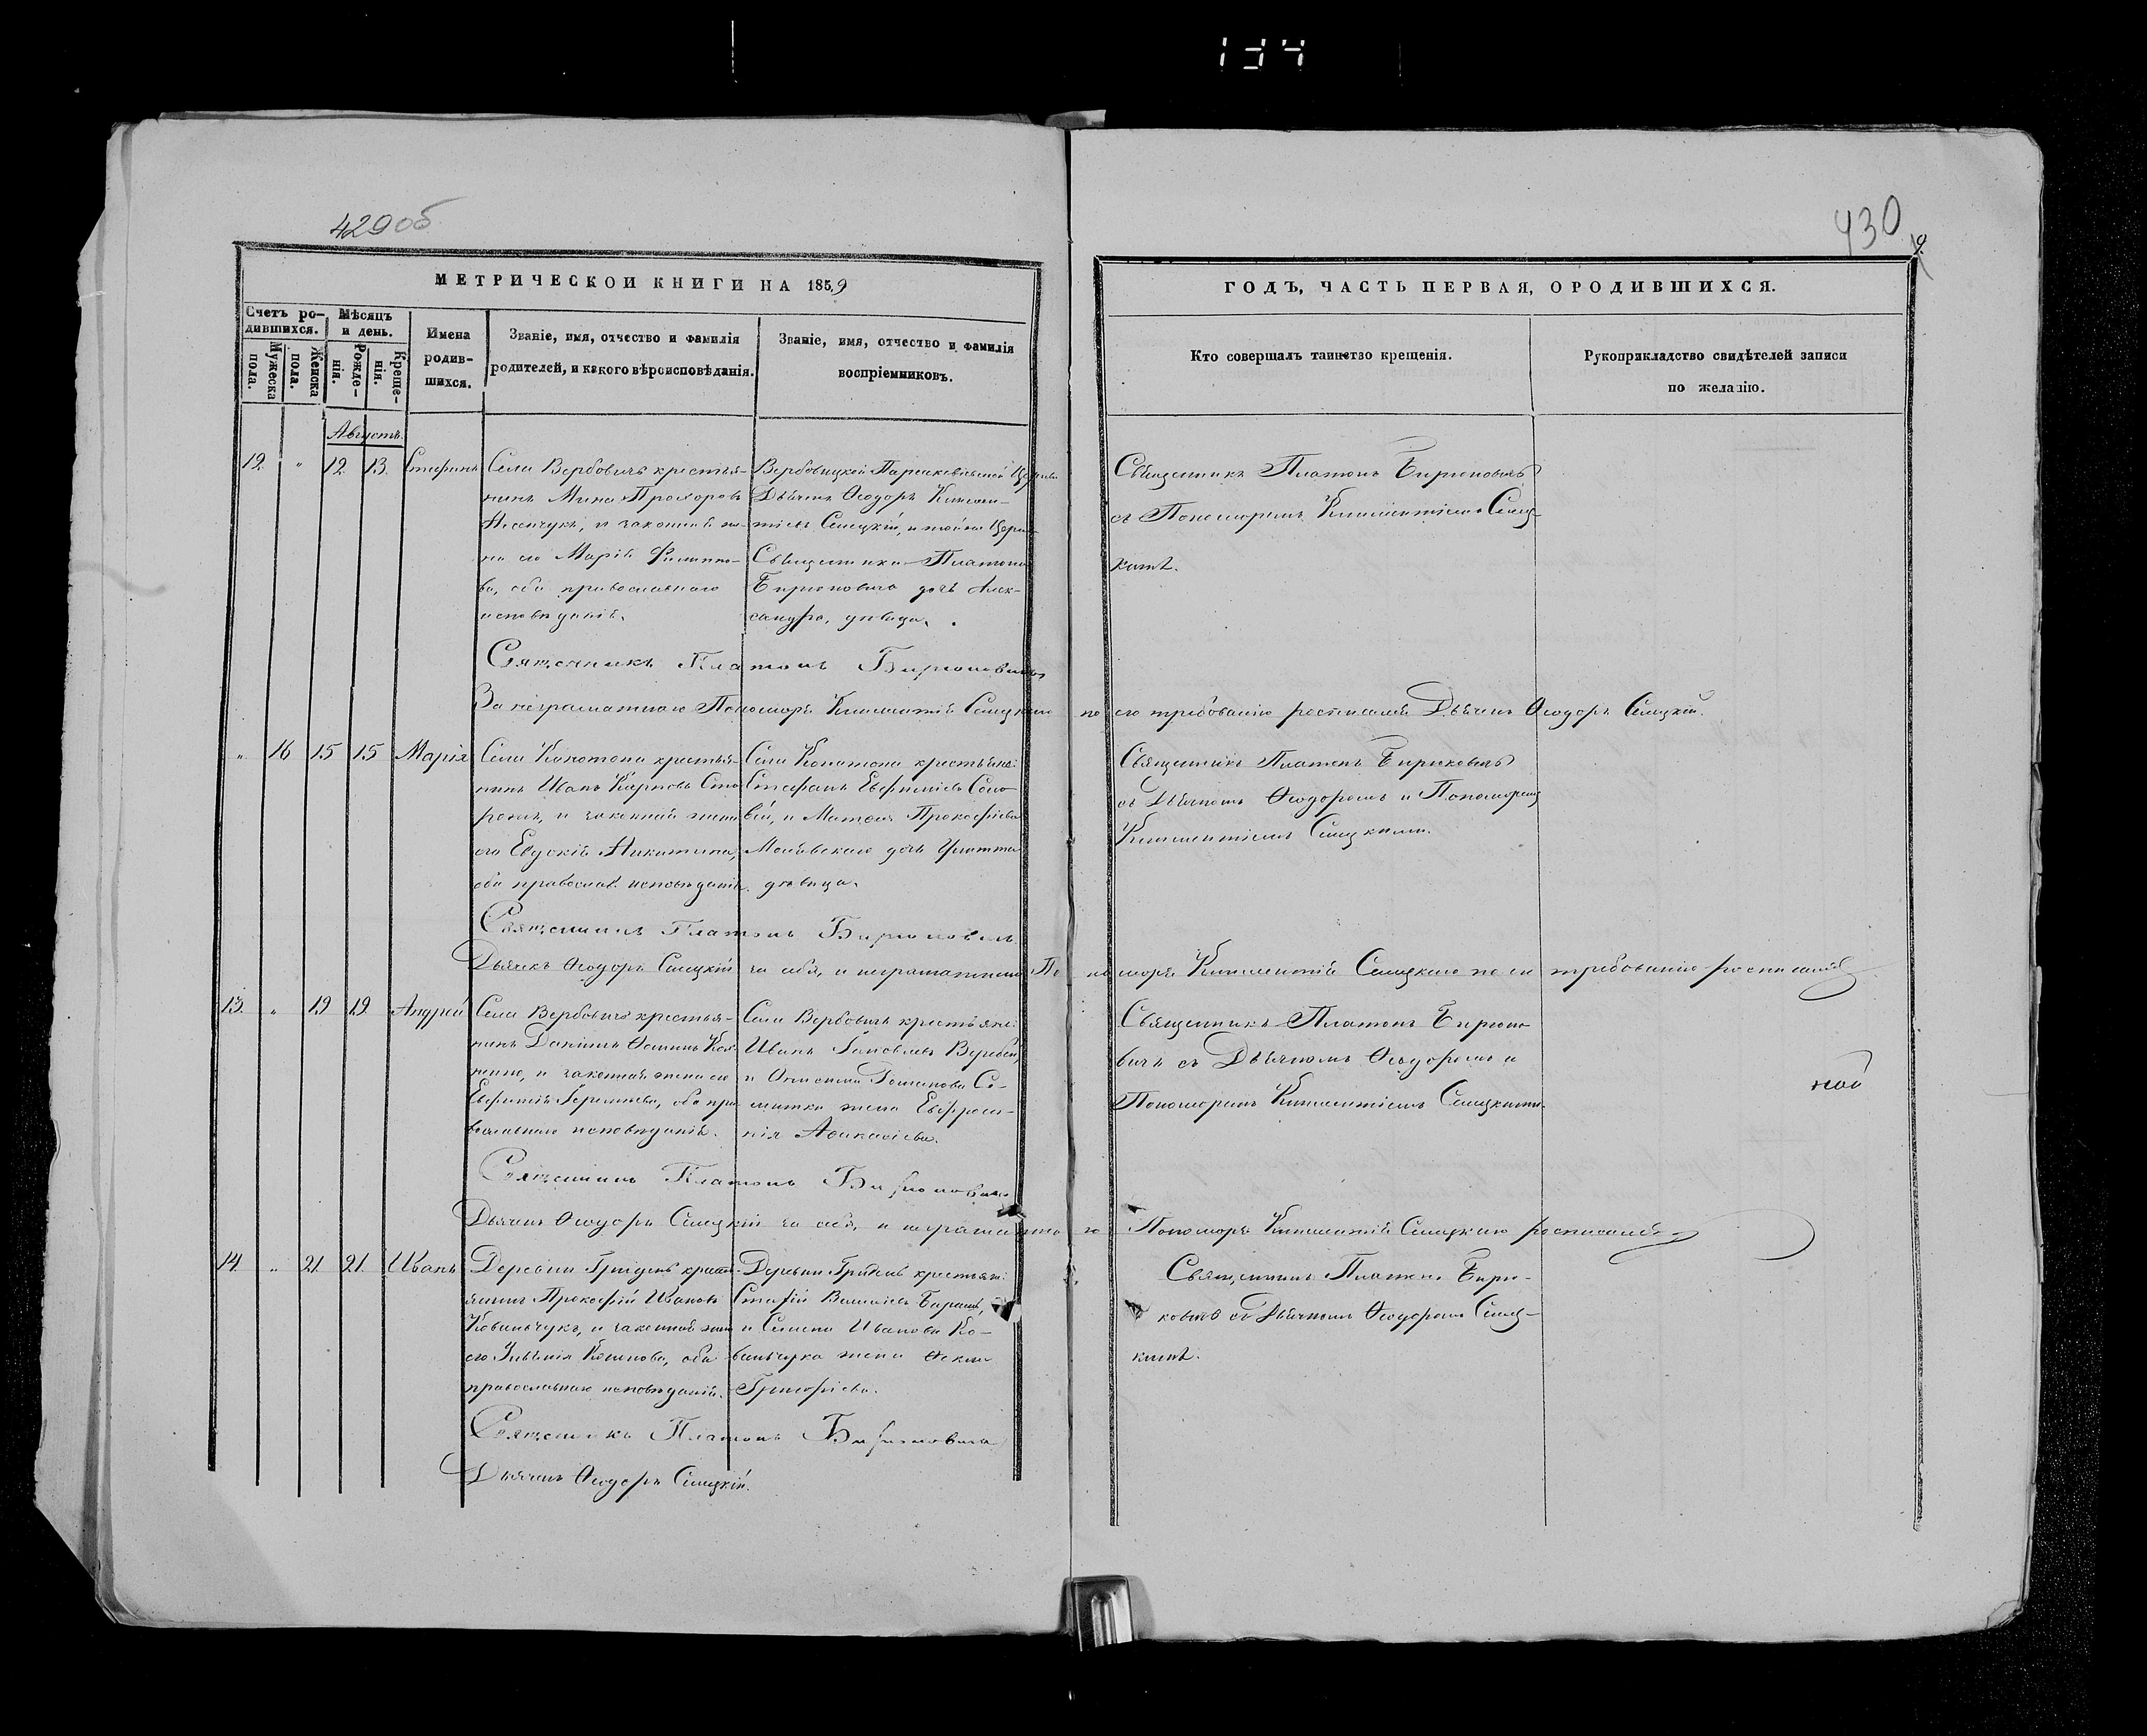 134
429 об
430
9.
МЕТРИЧЕСКОИ КНИГИ НА 1859
ГОДЪ, ЧАСТЬ ПЕРВАЯ, ОРОДИВШИХСЯ.
Счетъ ро-
дившихся.
Мужеска
пола.
Женска
пола.
Мѣсяцъ
и день.
Рожде-
нія.
Креще-
нія.
Имена
родив-
шихся.
Званіе, имя, отчество и фамилія
родителей, и какого вѣроисповѣданія.
Званіе, имя, отчество и фамилія
воспріемниковъ.
Кто совершалъ таинство крещенія.
Рукоприкладство свидѣтелей записи
по желанію.
Августъ.
12. " 12. 13. Стефанъ
Села Вербовичъ крестья-
нинъ Мина Прохоровъ
и законная же-
на его Марія Филиппо-
ва, оба православнаго
исповѣданія.
Вербовицкой Параскевіевской Церкви
Дьячекъ Ѳеодоръ Климен-
тіевъ Слицкій, и той же Церкви
Священника Платона
Бирюковича дочь Алек-
сандра, дѣвица.
Священникъ Платонъ Бирюковичъ
съ Пономаремъ Климентіемъ Слиц-
кимъ.
Священникъ Платонъ Бирюковичъ
За неграматнаго Пономаря Климентія Слицкаго по его требованію росписался Дьячекъ Ѳеодоръ Слицкій.
" 16 15 15 Марія
Села Конотопа крестья-
нинъ Иванъ Карповъ
и законная жена
его Евдокія Никитина,
оба православ. исповѣданія.
Села Конотопа крестьяне:
Стефанъ Евфиміевъ Соло-
вей, и Матвея Прокофіева
дочь
дѣвица.
Священникъ Платонъ Бирюковичъ
съ Дьячкомъ Ѳеодоромъ и Пономаремъ
Климентіемъ Слицкими.
Священникъ Платонъ Бирюковичъ
Дьячекъ Ѳеодоръ Слицкій за себя, и неграматнаго Пономаря Климентія Слицкаго по его требованію росписался
13. " 19 19 Андрей
Села Вербовичъ крестья-
нинъ Даніилъ Ѳоминъ
и законная жена его
Евфимія оба пра-
вославнаго исповѣданія.
Села Вербовичъ крестьяне:
Иванъ Яковлевъ
и Романова
жена Евфроси-
нія Аѳанасіева.
Священникъ Платонъ Бирюко-
вичъ съ Дьячкомъ Ѳеодоромъ и
Пономаремъ Климентіемъ Слицкими.
Священникъ Платонъ Бирюковичъ
Дьячекъ Ѳеодоръ Слицкій за себя, и неграматнаго Пономаря Климентія Слицкаго росписался
14. " 21. 21. Иванъ
Деревни Гридень кресть-
янинъ Прокофій Ивановъ
Ковальчукъ, и законная жена
его оба
православнаго исповѣданія.
Деревни Гридень крестьяне:
и Семена Иванова Ко-
вальчука жена Ѳекла
Григорьева.
Священникъ Платонъ Бирю-
ковичъ съ Дьячкомъ Ѳеодоромъ Слиц-
кимъ.
Священникъ Платонъ Бирюковичъ
Дьячекъ Ѳеодоръ Слицкій.